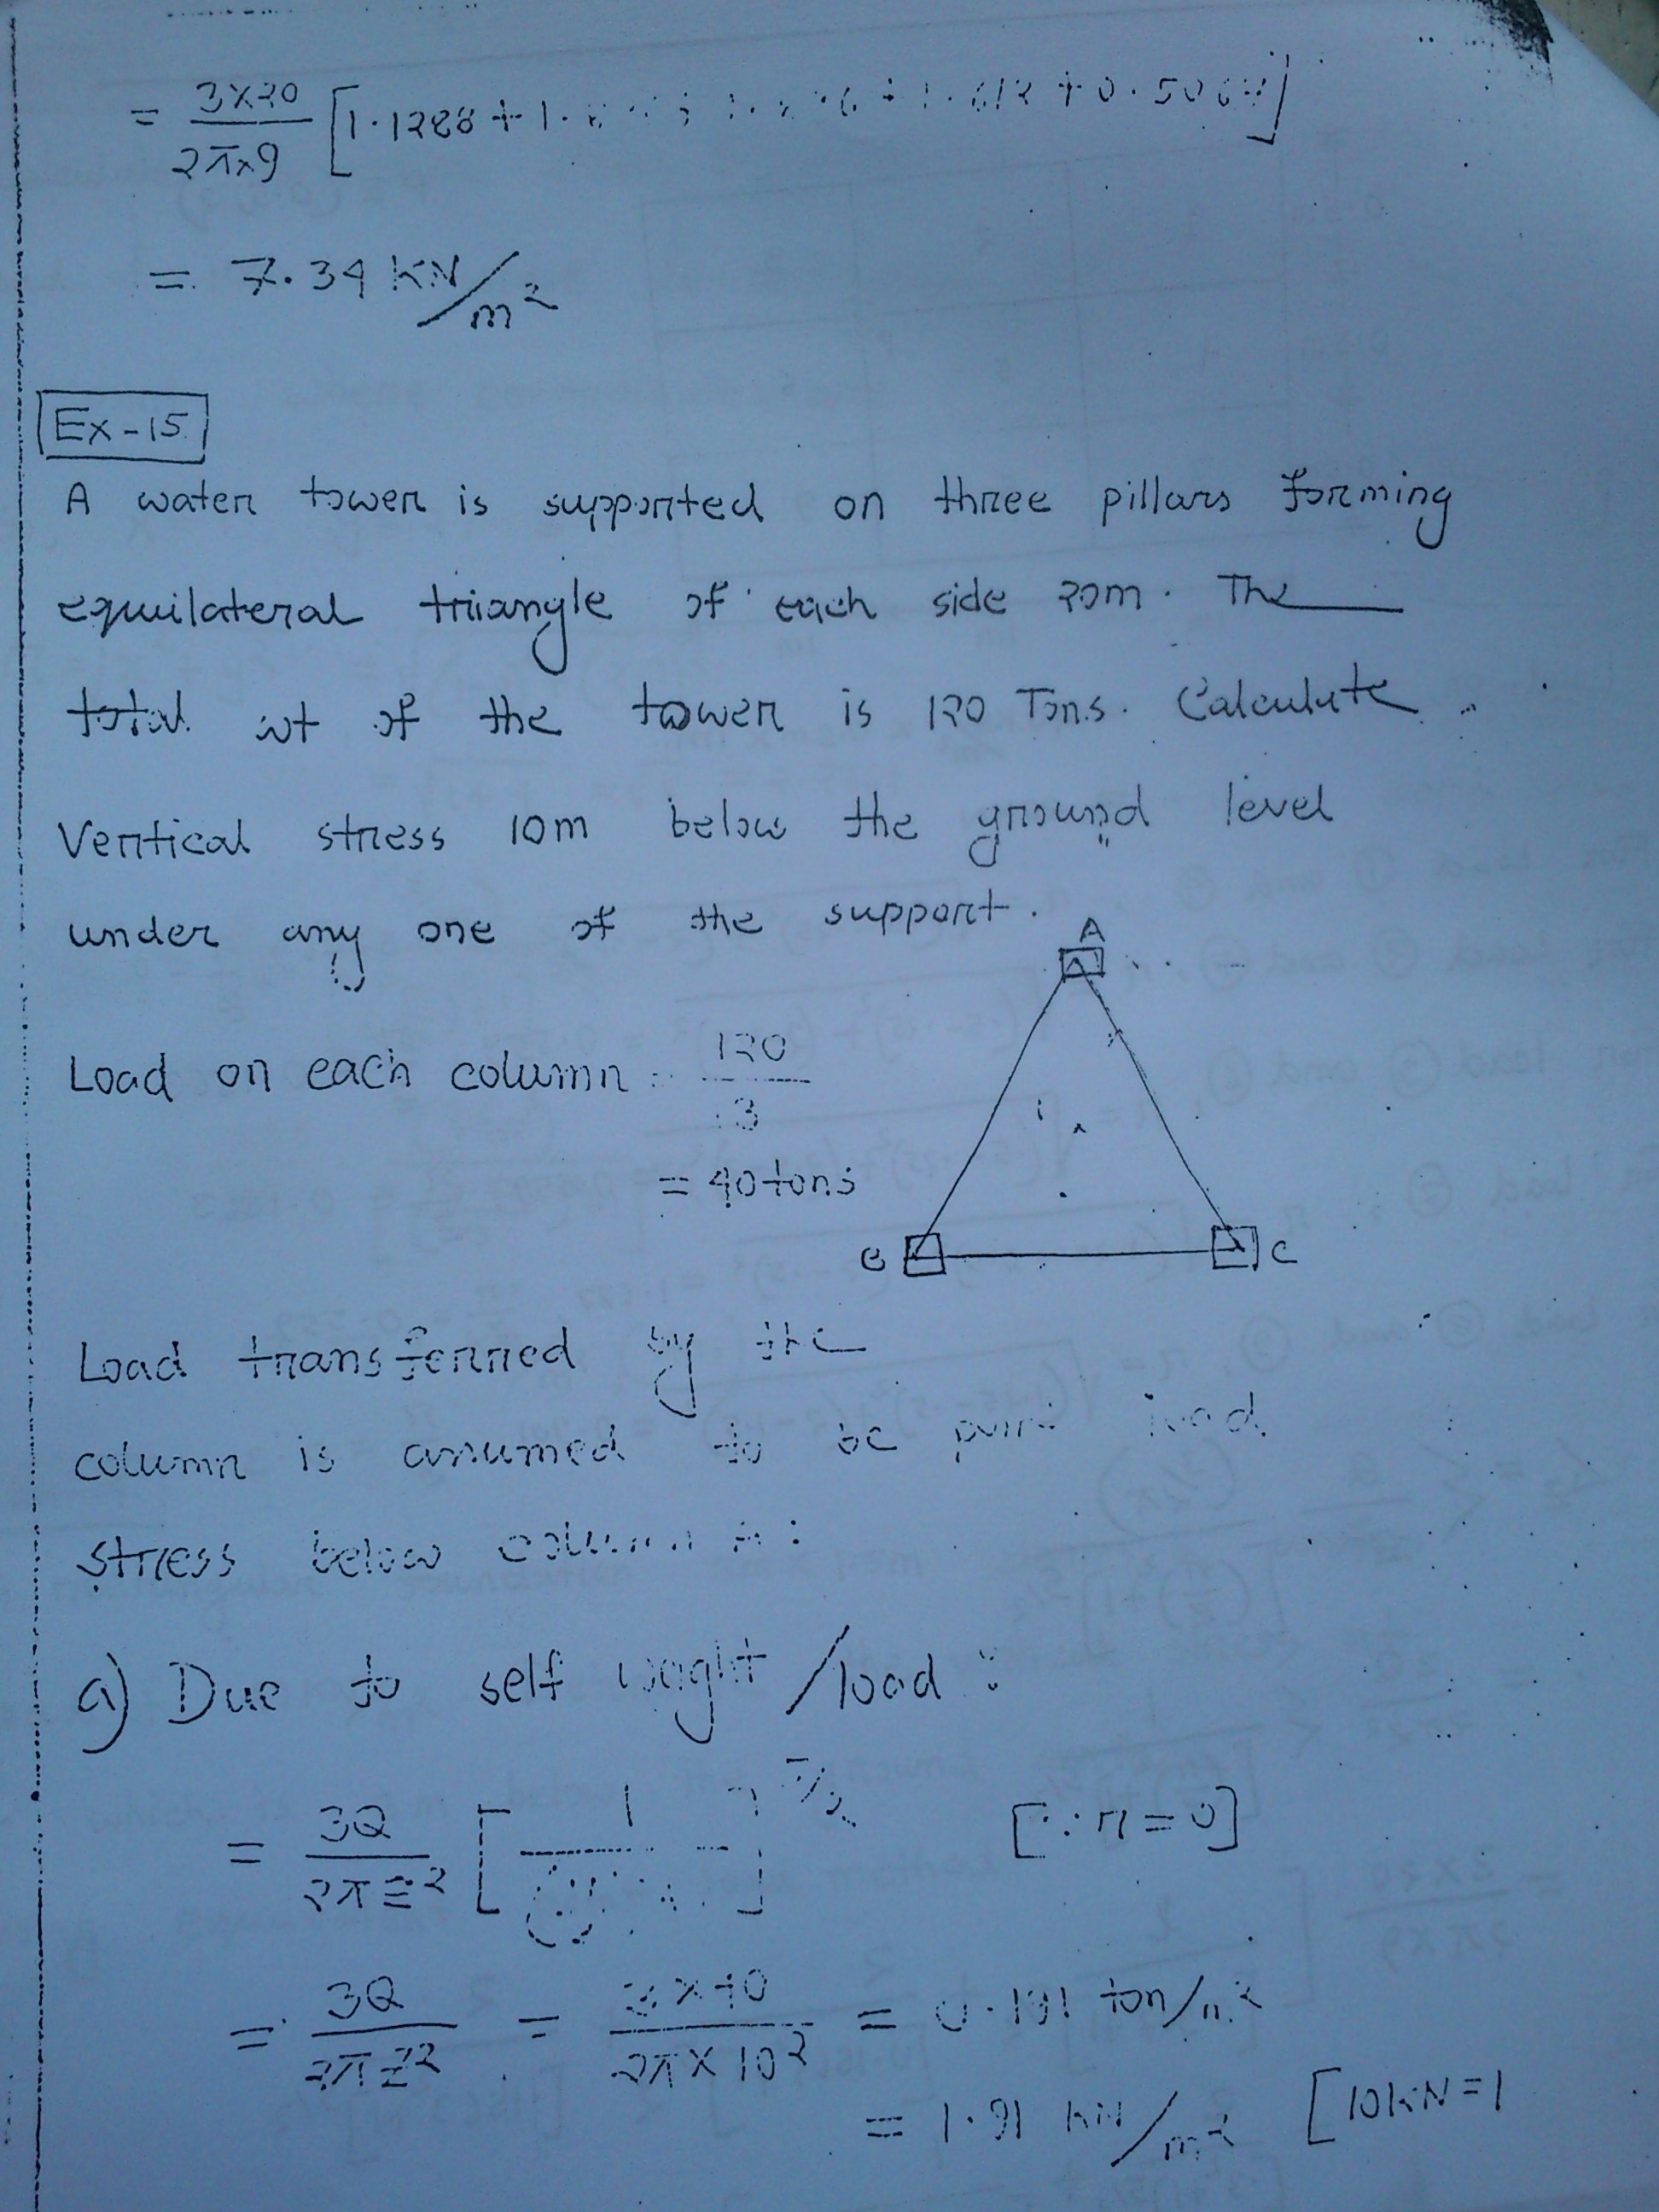 = 3×20 / 2π×9 [1.1288 + 1. + 0.5064]
= 7.34 KN/m²
Ex-15
A water tower is supported on three pillars forming
equilateral triangle of each side 20m. The
total wt of the tower is 120 Tons. Calculate
Vertical stress 10m below the ground level
under any one of the support.
A
Load on each column = 120 / 3
= 40 tons
B C
Load transferred by the
column is assumed to be point load
stress below column A:
a) Due to self waght/load:
= 3Q / 2πZ² [ 1 / ]^5/2 [∵ r = 0]
= 3Q / 2πZ² = 3×40 / 2π×10² = 0.191 ton/m²
= 1.91 kN/m² [10kN=1